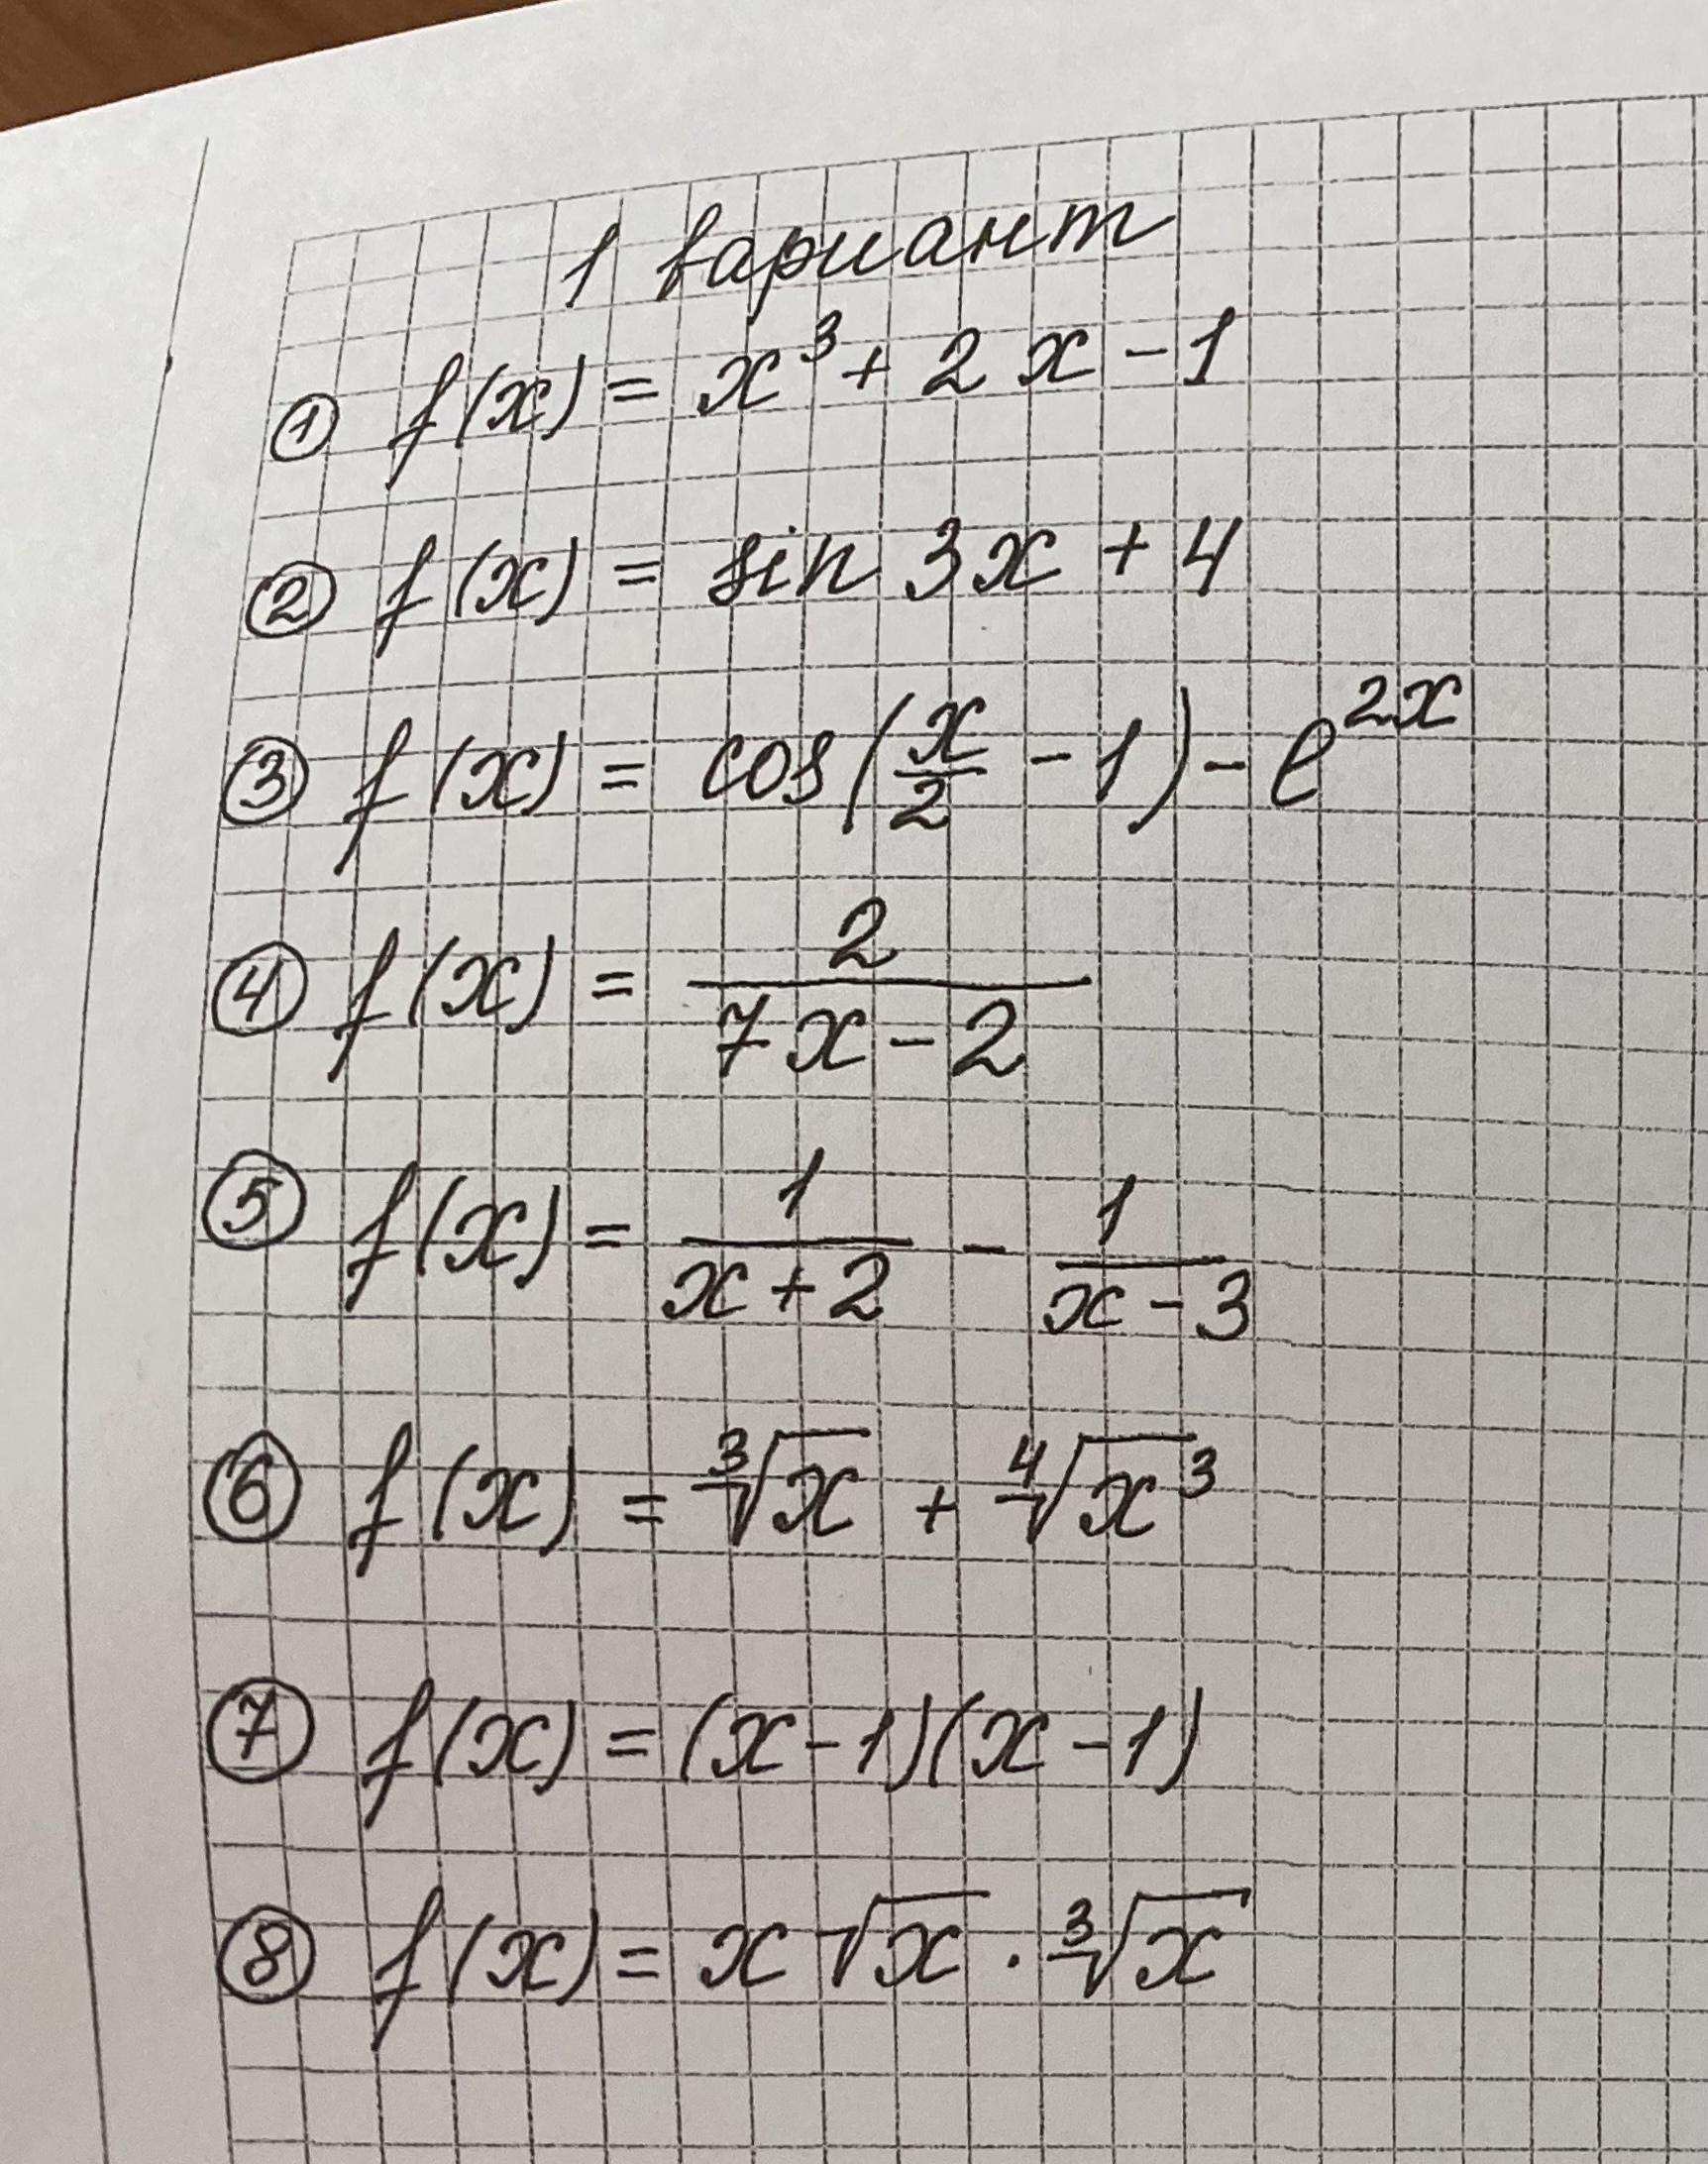 1 вариант
① f(x) = x³ + 2x - 1
② f(x) = sin 3x + 4
③ f(x) = cos(x/2 - 1) - e^{2x}
④ f(x) = 2/(7x - 2)
⑤ f(x) = 1/(x + 2) - 1/(x - 3)
⑥ f(x) = ∛x + ∜x³
⑦ f(x) = (x - 1)(x - 1)
⑧ f(x) = x √x · ∛x